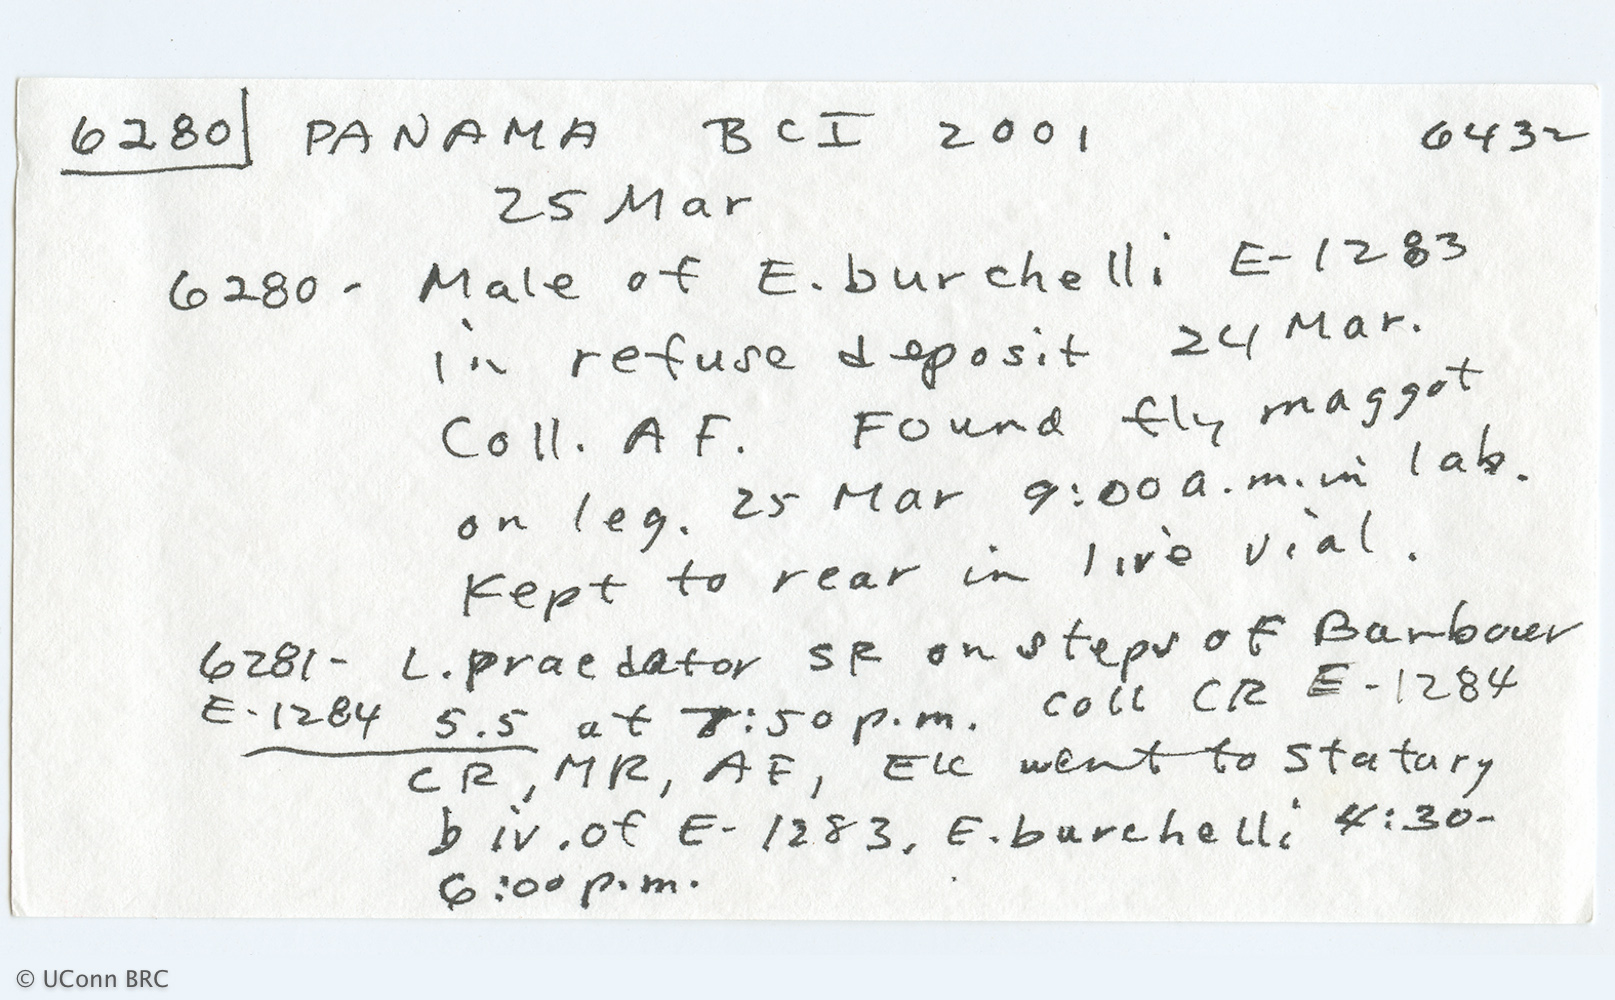 6280 PANAMA BCI 2001 6432
25 Mar
6280 - Male of E. burchelli E-1283
in refuse deposit 24 Mar.
Coll. AF. Found fly maggot
on leg. 25 Mar 9:00 a.m. in lab.
Kept to rear in live vial.
6281 - L. praedator SR on steps of Barbour
E-1284 5.5 at 7:50 p.m. coll CR E-1284
CR, MR, AF, EK went to statary
biv. of E-1283, E. burchelli 4:30-
6:00 p.m.
© UConn BRC